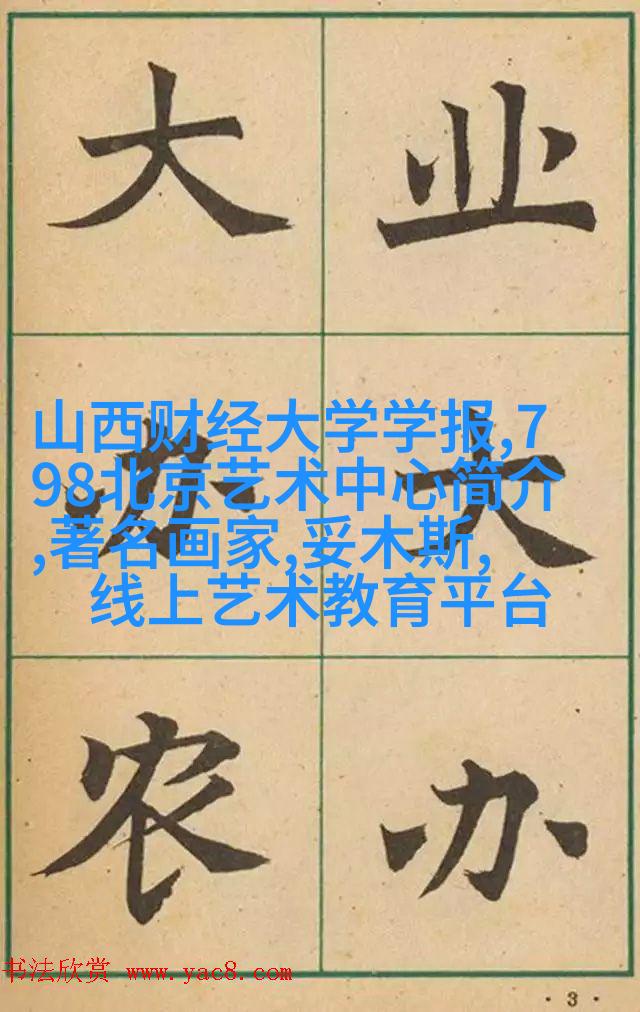 大
办
农
业
大
办
山西财经大学学报,7
98北京艺术中心简介
,著名画家,妥木斯,
线上艺术教育平台
书法欣赏 www.yac8.com
·3·